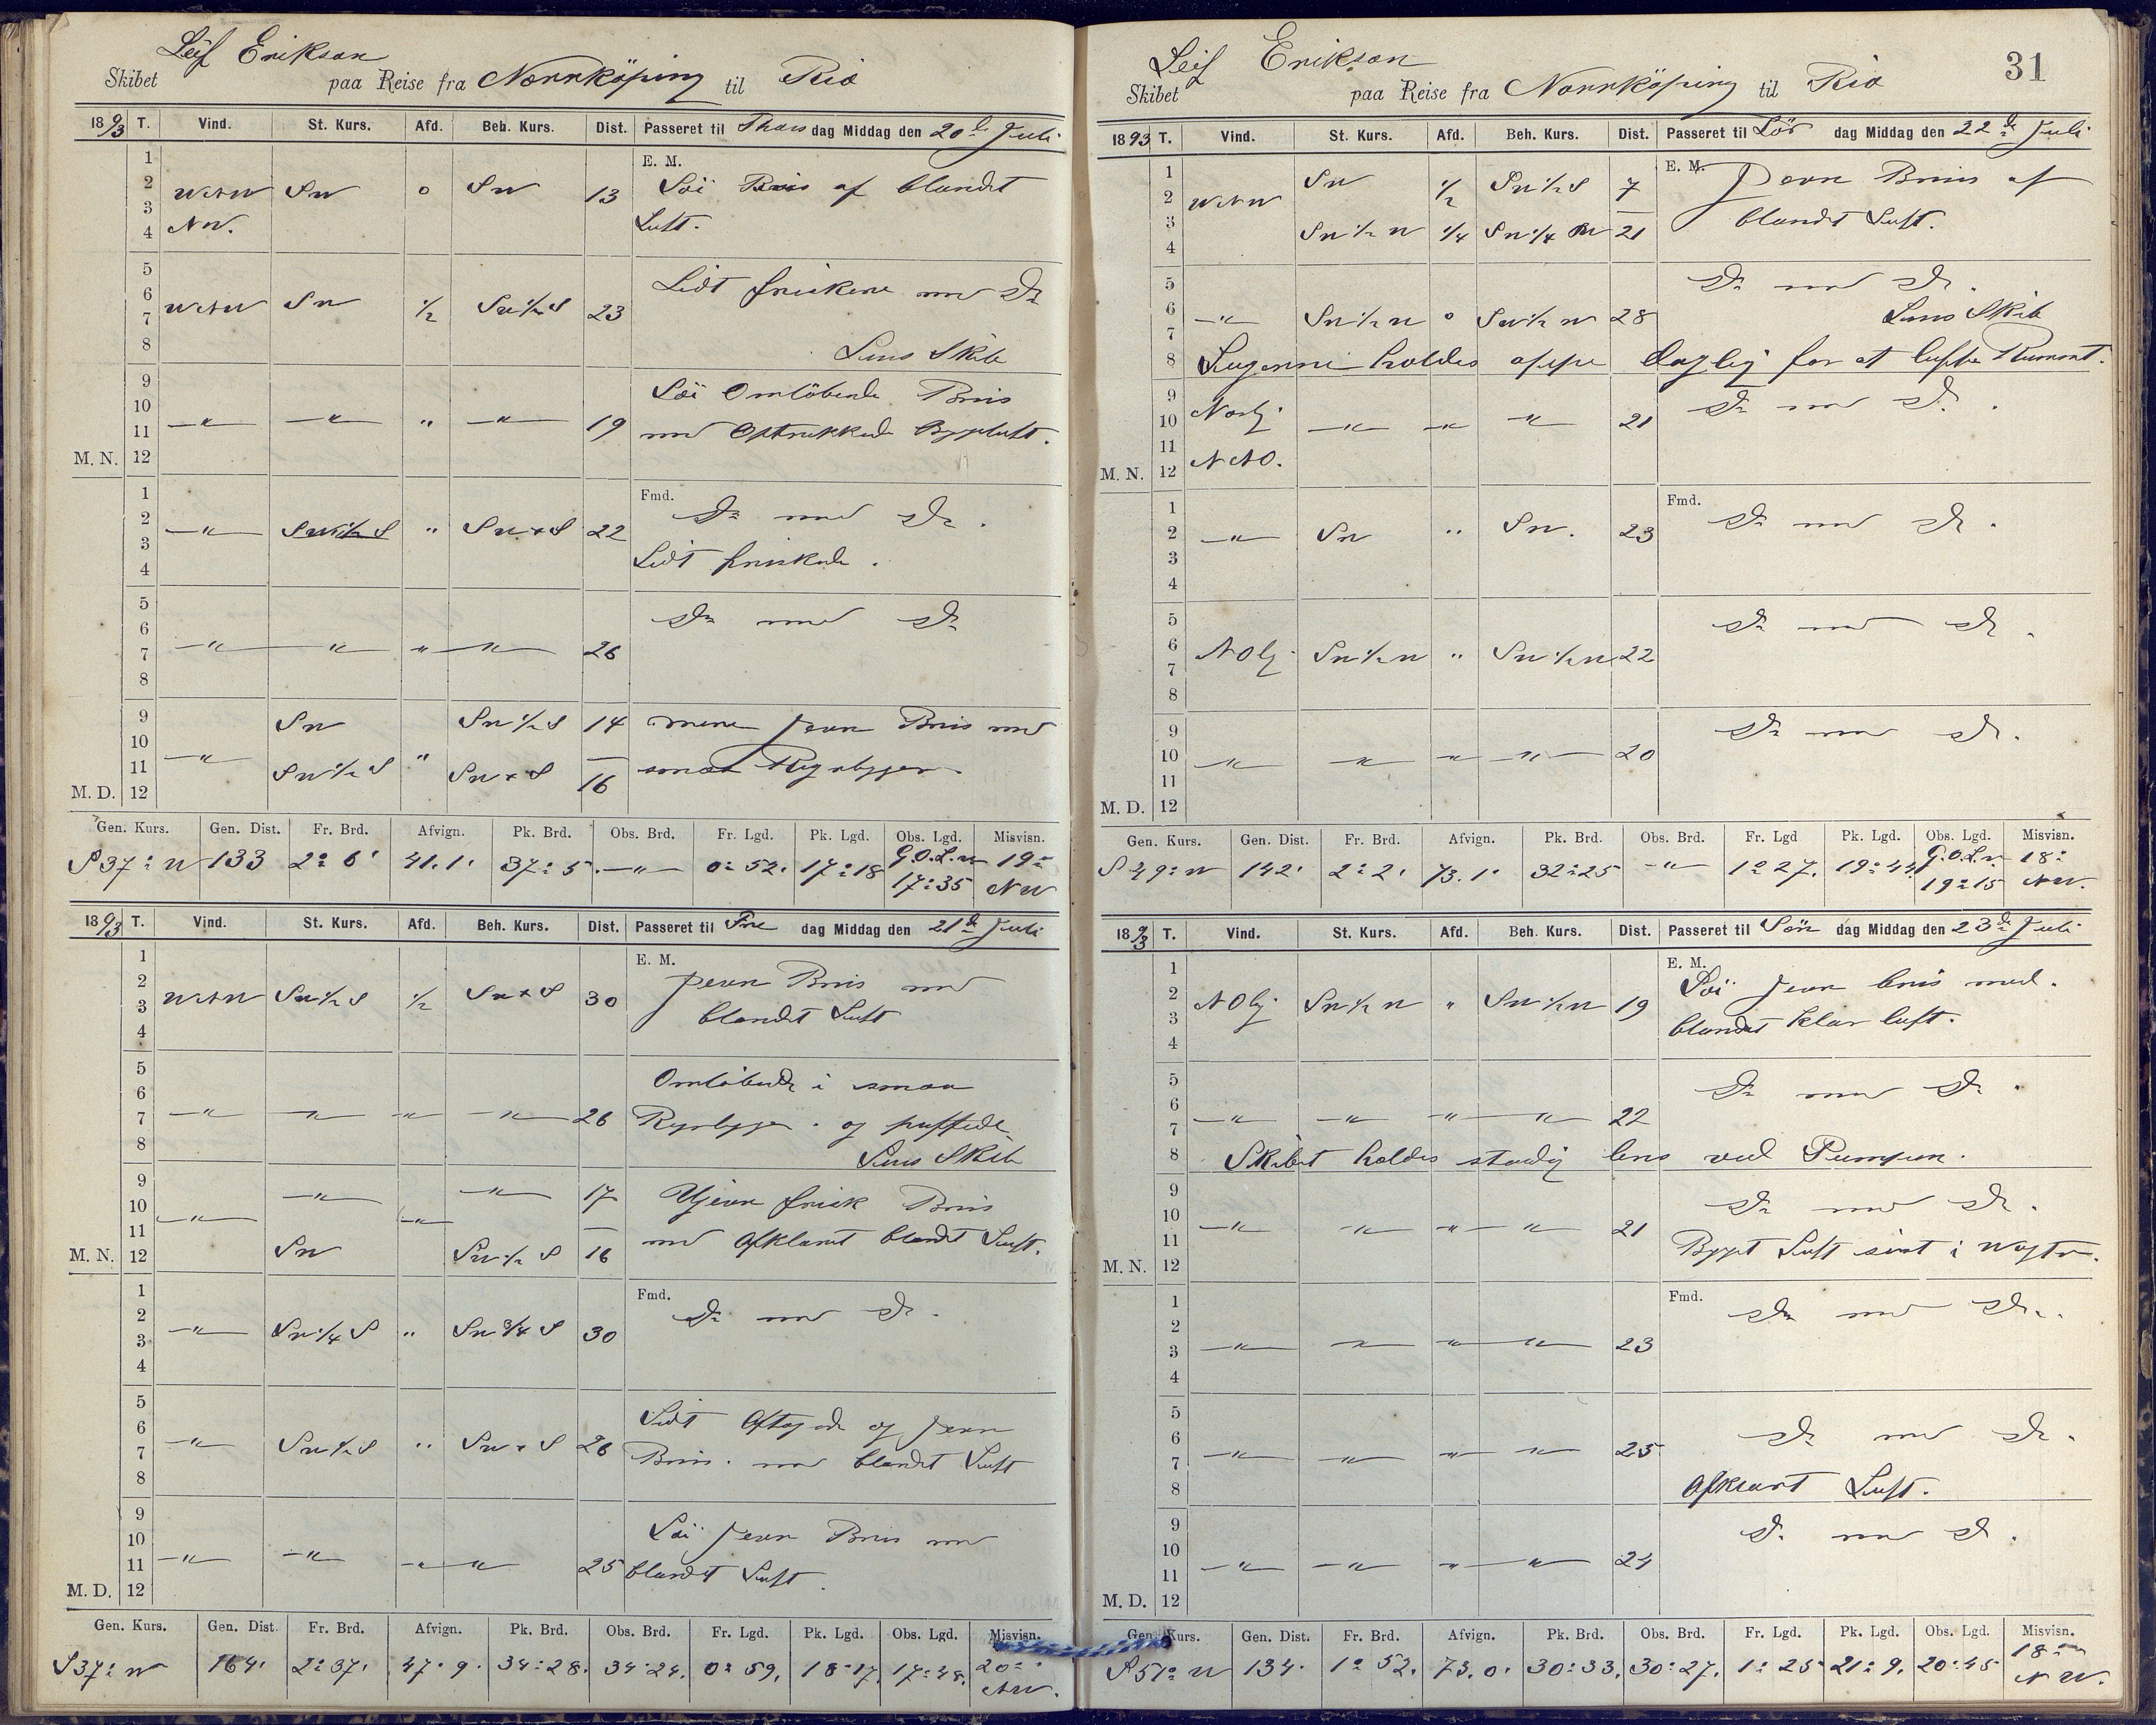 Leif Erikson
Skibet paa Reise fra Norrköping til Rio
1893 T. Vind. St. Kurs. Afd. Beh. Kurs. Dist. Passeret til Thors dag Middag den 20de Juli
E. M.
1
2 WNW SW o SW 13 Löi Bris af blandet
3 NW. Luft.
4
5 Lidt friskere med Do
6 WNW SW 1/2 SW 1/2 S 23
7
8 Lens Skib
9 Löi Omlöbende Bris
10 —"— —"— " —"— 19 med Optrukken Bygeluft.
11
M. N. 12
Fmd.
1 Do med Do.
2 —"— SW 1/2 S " SW x S 22
3 Lidt friskende.
4
5 Do med Do
6 —"— —"— " —"— 26
7
8
9 SW SW 1/2 S 14 mere jevn Bris med
10 —"— "
11 SW 1/2 S SW x S 16 smaa Regnbyger.
M. D. 12
Gen. Kurs. Gen. Dist. Fr. Brd. Afvign. Pk. Brd. Obs. Brd. Fr. Lgd. Pk. Lgd. Obs. Lgd. Misvisn.
S 37° W 133 2° 6' 41.1' 37° 5' —"— 0° 52. 17° 18 G.O.L.W 17° 35 19° NW
1893 T. Vind. St. Kurs. Afd. Beh. Kurs. Dist. Passeret til Fre dag Middag den 21de Juli
E. M.
1 Jevn Bris med
2 WNW SW 1/2 S 1/2 SW x S 30
3 blandet Luft
4
5 Omlöbende i smaa
6
7 —"— —"— —"— —"— 26 Regnbyger. og puffede
8 Lens Skib
9 —"— —"— 17 Ujevn frisk Bris
10 —"— —"—
11 med Afklaret blandet Luft.
M. N. 12 SW SW 1/2 S 16
Fmd.
1 Do med Do.
2 —"— SW 1/4 S " SW 3/4 S 30
3
4
5 Lidt Aftagende og jevn
6 —"— SW 1/2 S " SW x S 26
7 Bris. med blandet Luft
8
9 Löi jevn Bris med
10
11 —"— —"— —"— 25 blandet Luft.
M. D. 12
Gen. Kurs. Gen. Dist. Fr. Brd. Afvign. Pk. Brd. Obs. Brd. Fr. Lgd. Pk. Lgd. Obs. Lgd. Misvisn.
S 37° W 164. 2° 37' 47.9. 34° 28. 34° 24. 0° 59. 18° 17. 17° 48. 20° NW.
31
Leif Erikson
Skibet paa Reise fra Norrköping til Rio
1893 T. Vind. St. Kurs. Afd. Beh. Kurs. Dist. Passeret til Lör dag Middag den 22de Juli
E. M.
1 SW 1/2 SW 1/2 S 7 Jevn Bris af
2 WNW
3 SW 1/2 W 1/4 SW 1/4 W 21 blandet Luft.
4
5 Do med Do.
6 —"— SW 1/2 W o SW 1/2 W 28 Lens Skib
7
8 Lugerne holdes oppe daglig for at lufte Rummet.
9 Nordlj. Do med Do.
10 —"— —"— —"— 21
11
M. N. 12 NNO.
Fmd.
1 Do med Do.
2 —"— SW " SW. 23
3
4
5 Do med Do.
6 NOlj. SW 1/2 W " SW 1/2 W 22
7
8
9 Do med Do.
10 —"— —"— —"— —"— 20
11
M. D. 12
Gen. Kurs. Gen. Dist. Fr. Brd. Afvign. Pk. Brd. Obs. Brd. Fr. Lgd Pk. Lgd. Obs. Lgd. Misvisn.
S 49° W 142. 2° 2' 73.1' 32° 25 —"— 1° 27. 19° 44 G.O.L.W. 19° 15 18° NW.
1893 T. Vind. St. Kurs. Afd. Beh. Kurs. Dist. Passeret til Sön dag Middag den 23de Juli
E. M.
1 Löi jevn bris med
2 NOlj. SW 1/2 W " SW 1/2 W 19
3 blandet klar luft.
4
5 Do med Do.
6
7 —"— —"— —"— —"— 22
8 Skibet holdes stadig lens ved Pumpen.
9 Do med Do.
10 —"— —"— —"— —"— 21
11 Byget Luft sidst i Vagten.
M. N. 12
Fmd.
1 Do med Do.
2
3 —"— —"— —"— —"— 23
4
5
6 Do med Do.
7 —"— —"— —"— —"— 25
8 Afklart Luft.
9 Do med Do.
10
11 —"— —"— —"— —"— 24
M. D. 12
Gen. Kurs. Gen. Dist. Fr. Brd. Afvign. Pk. Brd. Obs. Brd. Fr. Lgd. Pk. Lgd. Obs. Lgd. Misvisn.
S 51° W 134. 1° 52. 73.0' 30° 33. 30° 27. 1° 25 21° 9. 20° 45 18° NW.